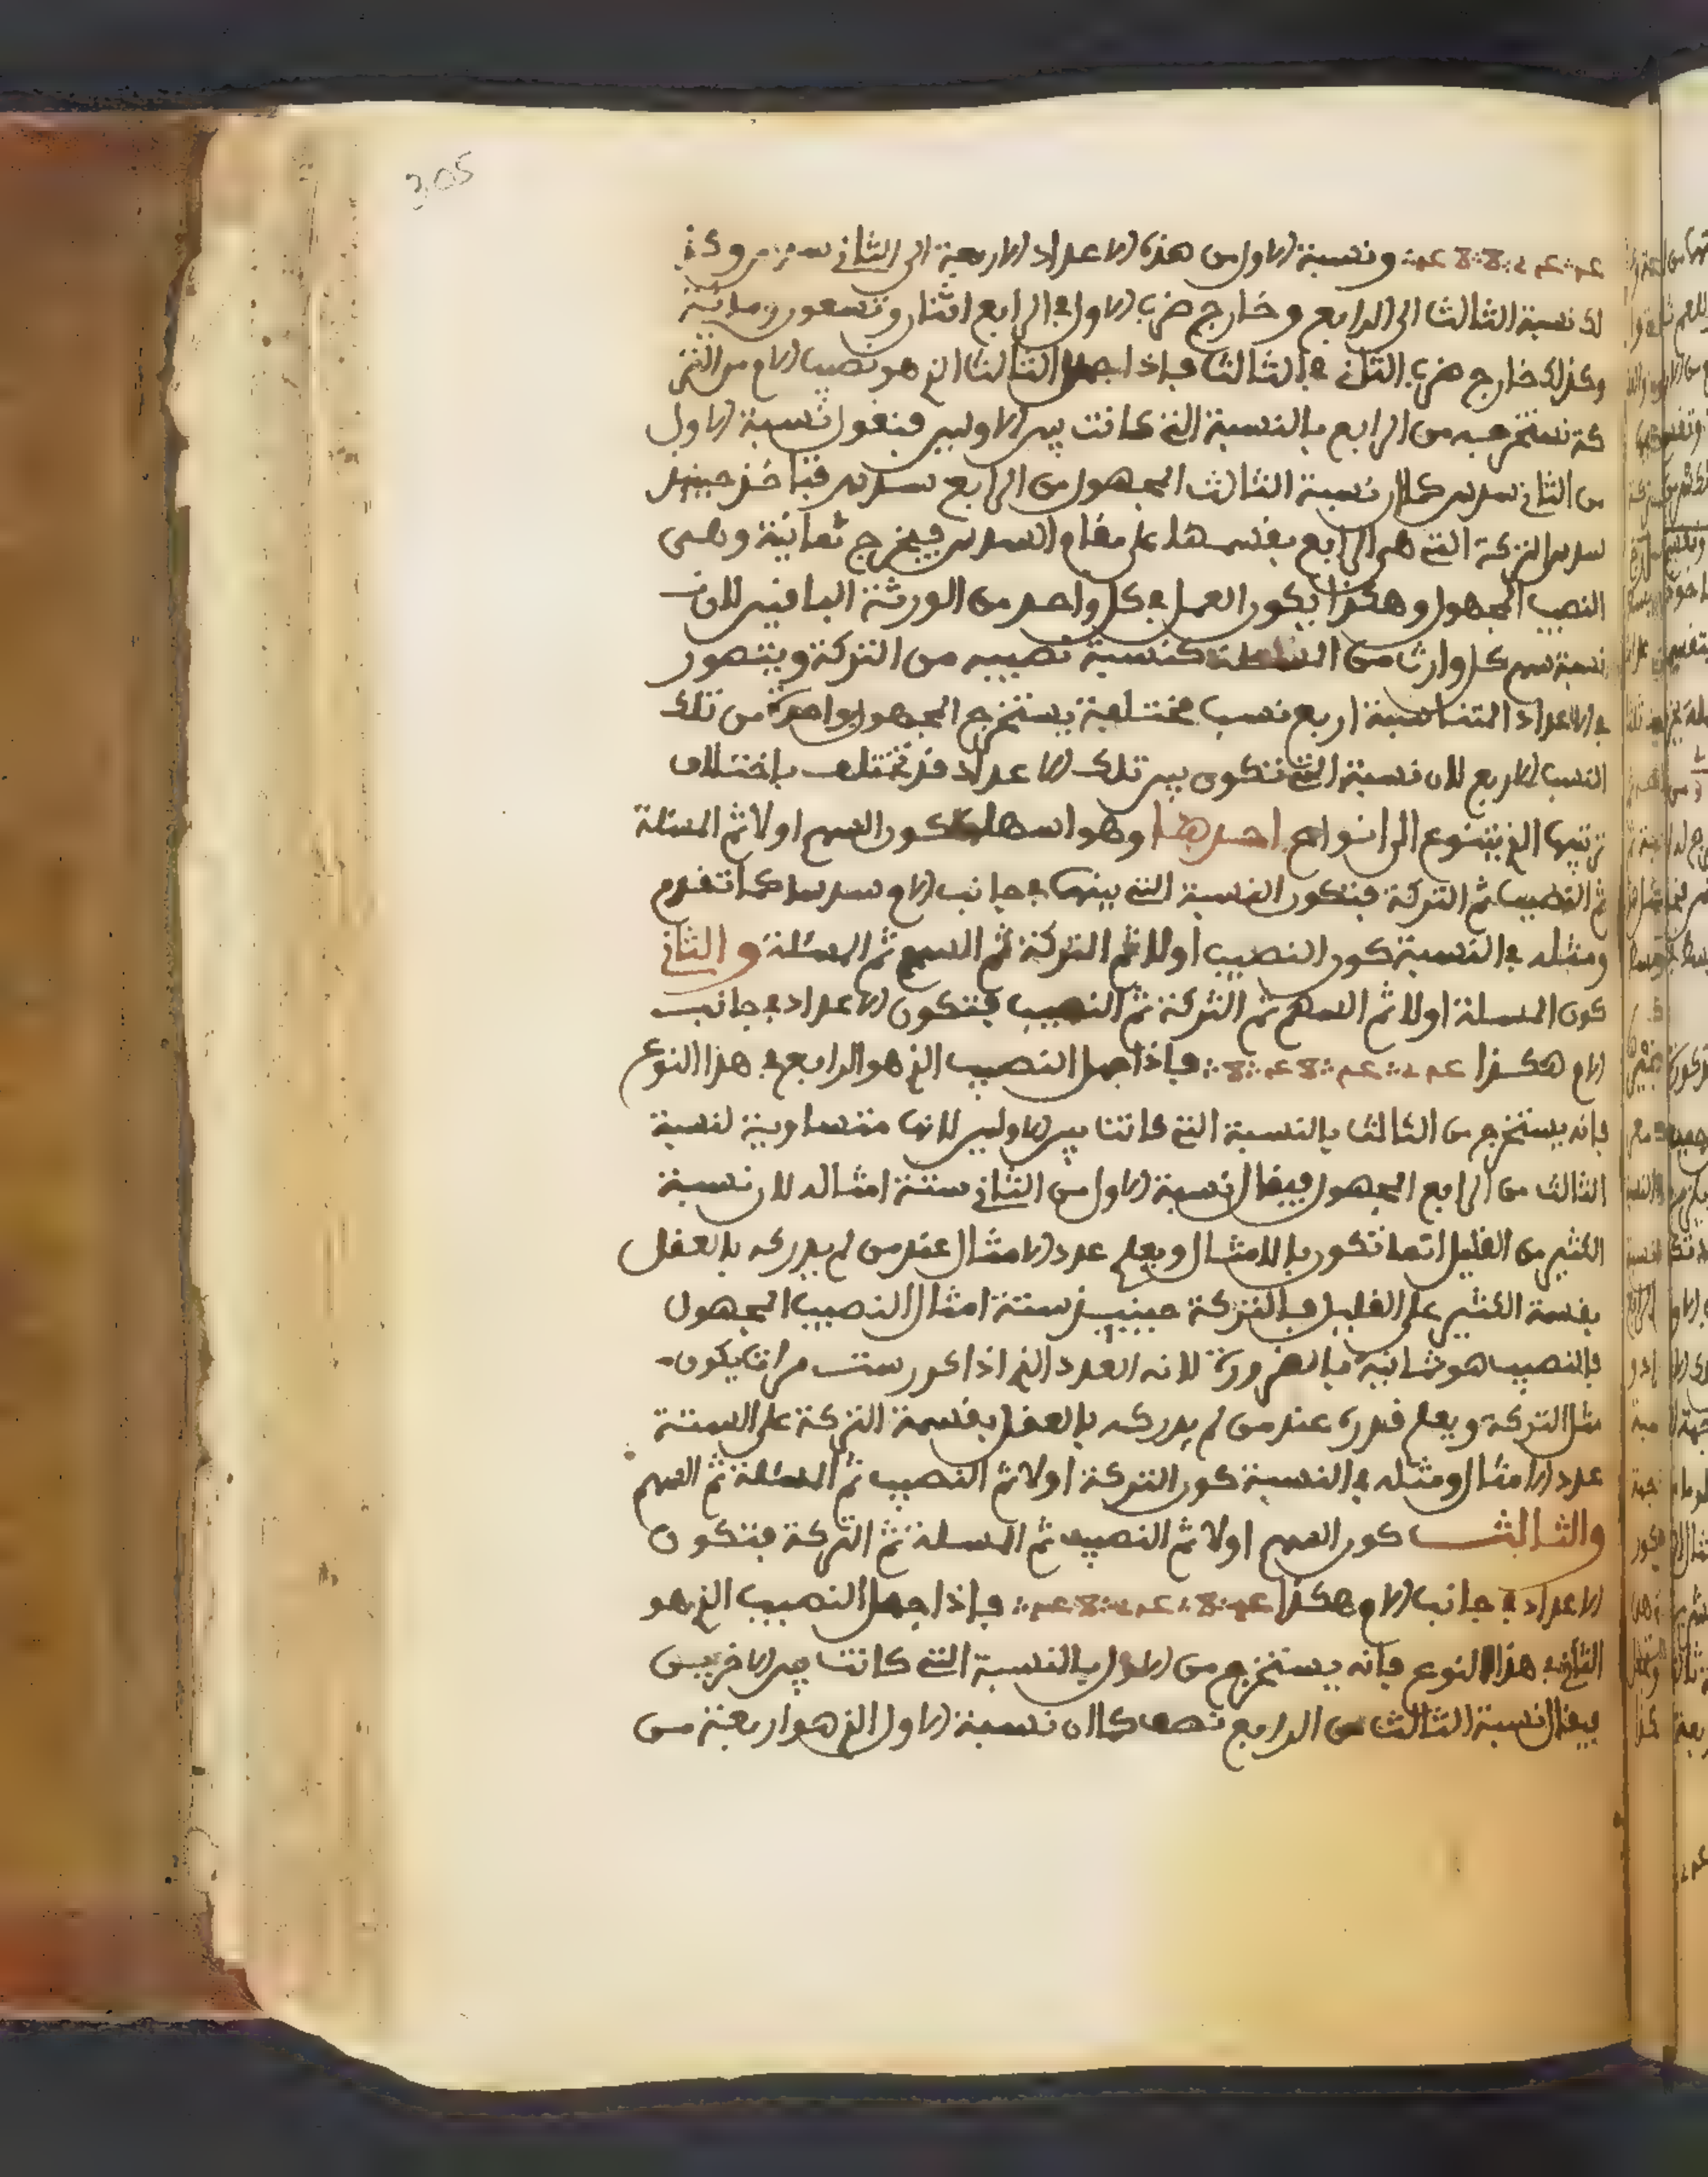 305
ونسبة الاول من هذه الاعداد الاربعة الى الثاني سدس وكذ
لك نسبة الثالث الى الرابع وخارج ضرب الاول في الرابع اثنان وتسعون ومائة
وكذلك خارج ضرب الثاني في الثالث فاذا جهل الثالث الذي هو نصيب الام من التر
كة تستخرجه من الرابع بالنسبة التي كانت بين الاولين فتقول نسبة الاول
من الثاني سدس كما ان نسبة الثالث المجهول من الرابع سدس فتأخذ حينئذ
سدس التركة التي هي الرابع بقسمها على مقام السدس فيخرج ثمانية وهي
النصيب المجهول وهكذا يكون العمل في كل واحد من الورثة الباقين لان
نسبة سهم كل وارث من المسئلة كنسبة نصيبه من التركة ويتصور
في الاعداد المتناسبة اربع نسب مختلفة يستخرج المجهول بواحدة من تلك
النسب الاربع لان نسبة التي تكون بين تلك الاعداد قد تختلف باختلاف
ترتيبها الذي يتنوع الى انواع احدها وهو اسهلها كون السهم اولا ثم المسئلة
ثم النصيب ثم التركة فتكون النسبة التي بينها في جانب الام سدسا كما تقدم
ومثله في النسبة كون النصيب اولا ثم التركة ثم السهم ثم المسئلة والثاني
كون المسئلة اولا ثم السهم ثم التركة ثم النصيب فتكون الاعداد في جانب
الام هكذا فاذا جهل النصيب الذي هو الرابع في هذا النوع
فانه يستخرج من الثالث بالنسبة التي كانت بين الاولين لانها متساوية لنسبة
الثالث من الرابع المجهول فيقال نسبة الاول من الثاني ستة امثاله لان نسبة
الكثير من القليل انما تكون بالامثال ويعلم عدد الامثال عند من لم يدركه بالعقل
بقسمة الكثير على القليل فالتركة حينئذ ستة امثال النصيب المجهول
فالنصيب هو ثمانية بالضرورة لانه العدد الذي اذا كرر ست مرات يكون
مثل التركة ويعلم قدره عند من لم يدركه بالعقل بقسمة التركة على الستة
عدد الامثال ومثله في النسبة كون التركة اولا ثم النصيب ثم المسئلة ثم السهم
والثالث كون السهم اولا ثم النصيب ثم المسئلة ثم التركة فتكون
الاعداد في جانب الام هكذا فاذا جهل النصيب الذي هو
الثاني في هذا النوع فانه يستخرج من الاول بالنسبة التي كانت بين الاخريين
فيقال نسبة الثالث من الرابع نصف كما ان نسبة الاول الذي هو اربعة من